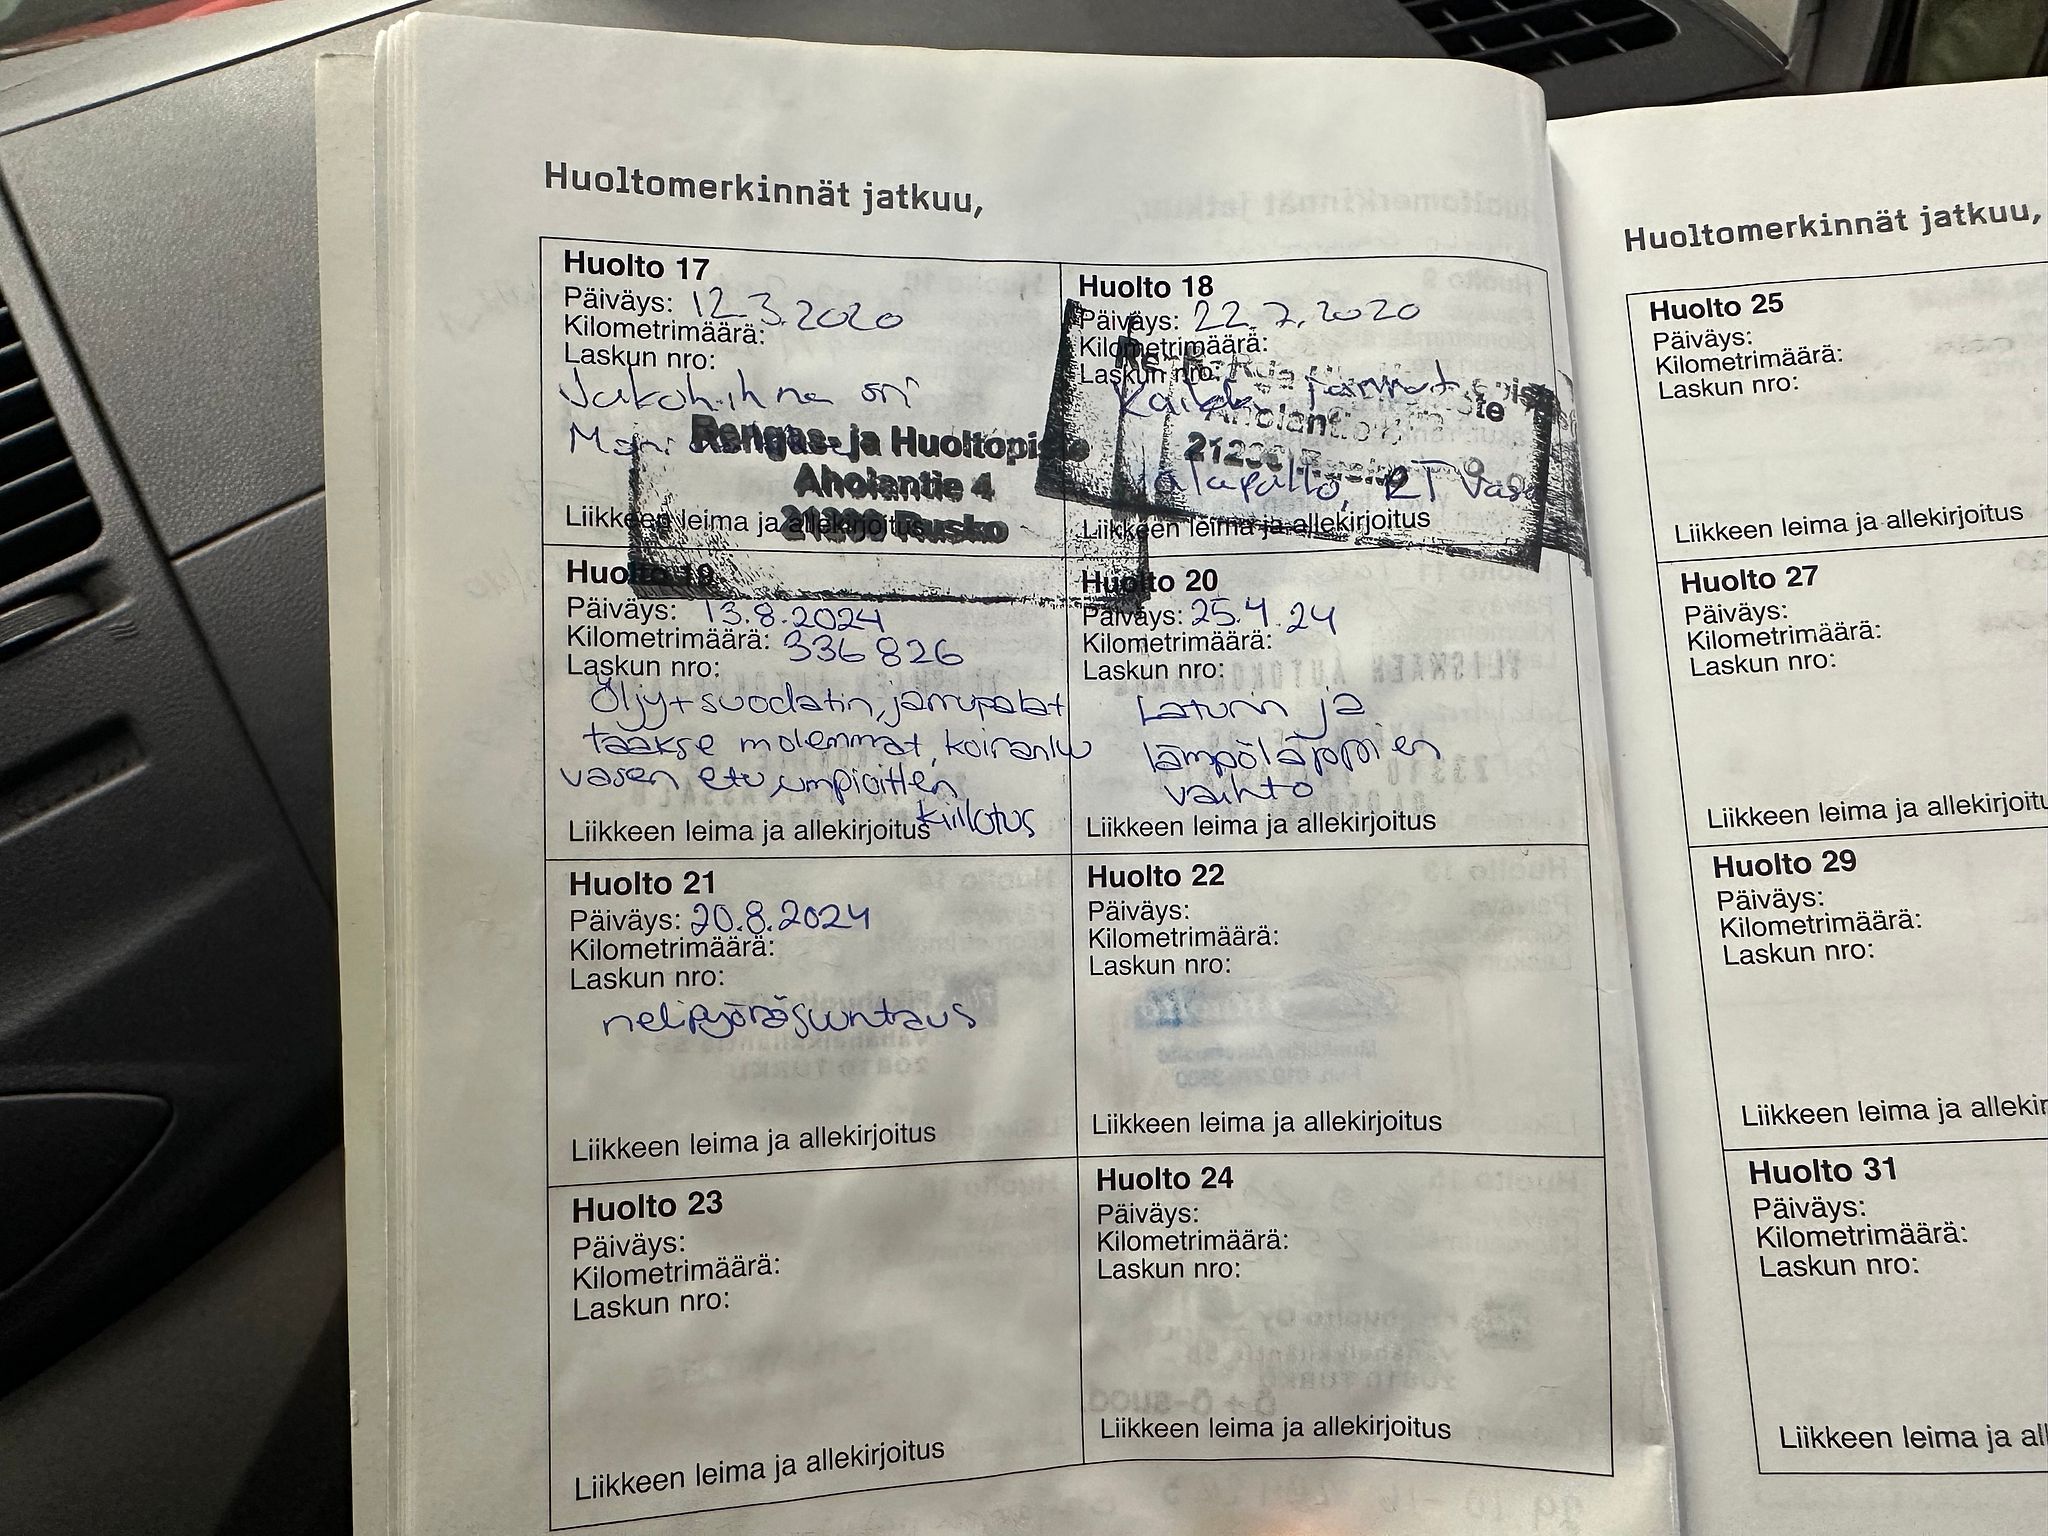 Huoltomerkinnät jatkuu,
Huolto 17
Päiväys: 12.3.2020
Kilometrimäärä:
Laskun nro:
Jakohihna sri
Moni
Rengas- ja Huoltopiste
Aholantie 4
21290 Rusko
Liikkeen leima ja allekirjoitus
Huolto 18
Päiväys: 22.7.2020
Kilometrimäärä:
Laskun nro:
Kaikki jarrut
Aholantie
alapallo, RT vasen
Liikkeen leima ja allekirjoitus
Huolto 19
Päiväys: 13.8.2024
Kilometrimäärä: 336 826
Laskun nro:
Öljy+suodatin, jarrupalat
taakse molemmat, koiranluu
vasen etu, umpioitten
kiillotus
Liikkeen leima ja allekirjoitus
Huolto 20
Päiväys: 25.4.24
Kilometrimäärä:
Laskun nro:
Laturin ja
lämpöläppien
vaihto
Liikkeen leima ja allekirjoitus
Huolto 21
Päiväys: 20.8.2024
Kilometrimäärä:
Laskun nro:
nelipyöräsuuntaus
Liikkeen leima ja allekirjoitus
Huolto 22
Päiväys:
Kilometrimäärä:
Laskun nro:
Liikkeen leima ja allekirjoitus
Huolto 23
Päiväys:
Kilometrimäärä:
Laskun nro:
Liikkeen leima ja allekirjoitus
Huolto 24
Päiväys:
Kilometrimäärä:
Laskun nro:
Liikkeen leima ja allekirjoitus
Huoltomerkinnät jatkuu,
Huolto 25
Päiväys:
Kilometrimäärä:
Laskun nro:
Liikkeen leima ja allekirjoitus
Huolto 27
Päiväys:
Kilometrimäärä:
Laskun nro:
Liikkeen leima ja allekirjoitu
Huolto 29
Päiväys:
Kilometrimäärä:
Laskun nro:
Liikkeen leima ja allekir
Huolto 31
Päiväys:
Kilometrimäärä:
Laskun nro:
Liikkeen leima ja all